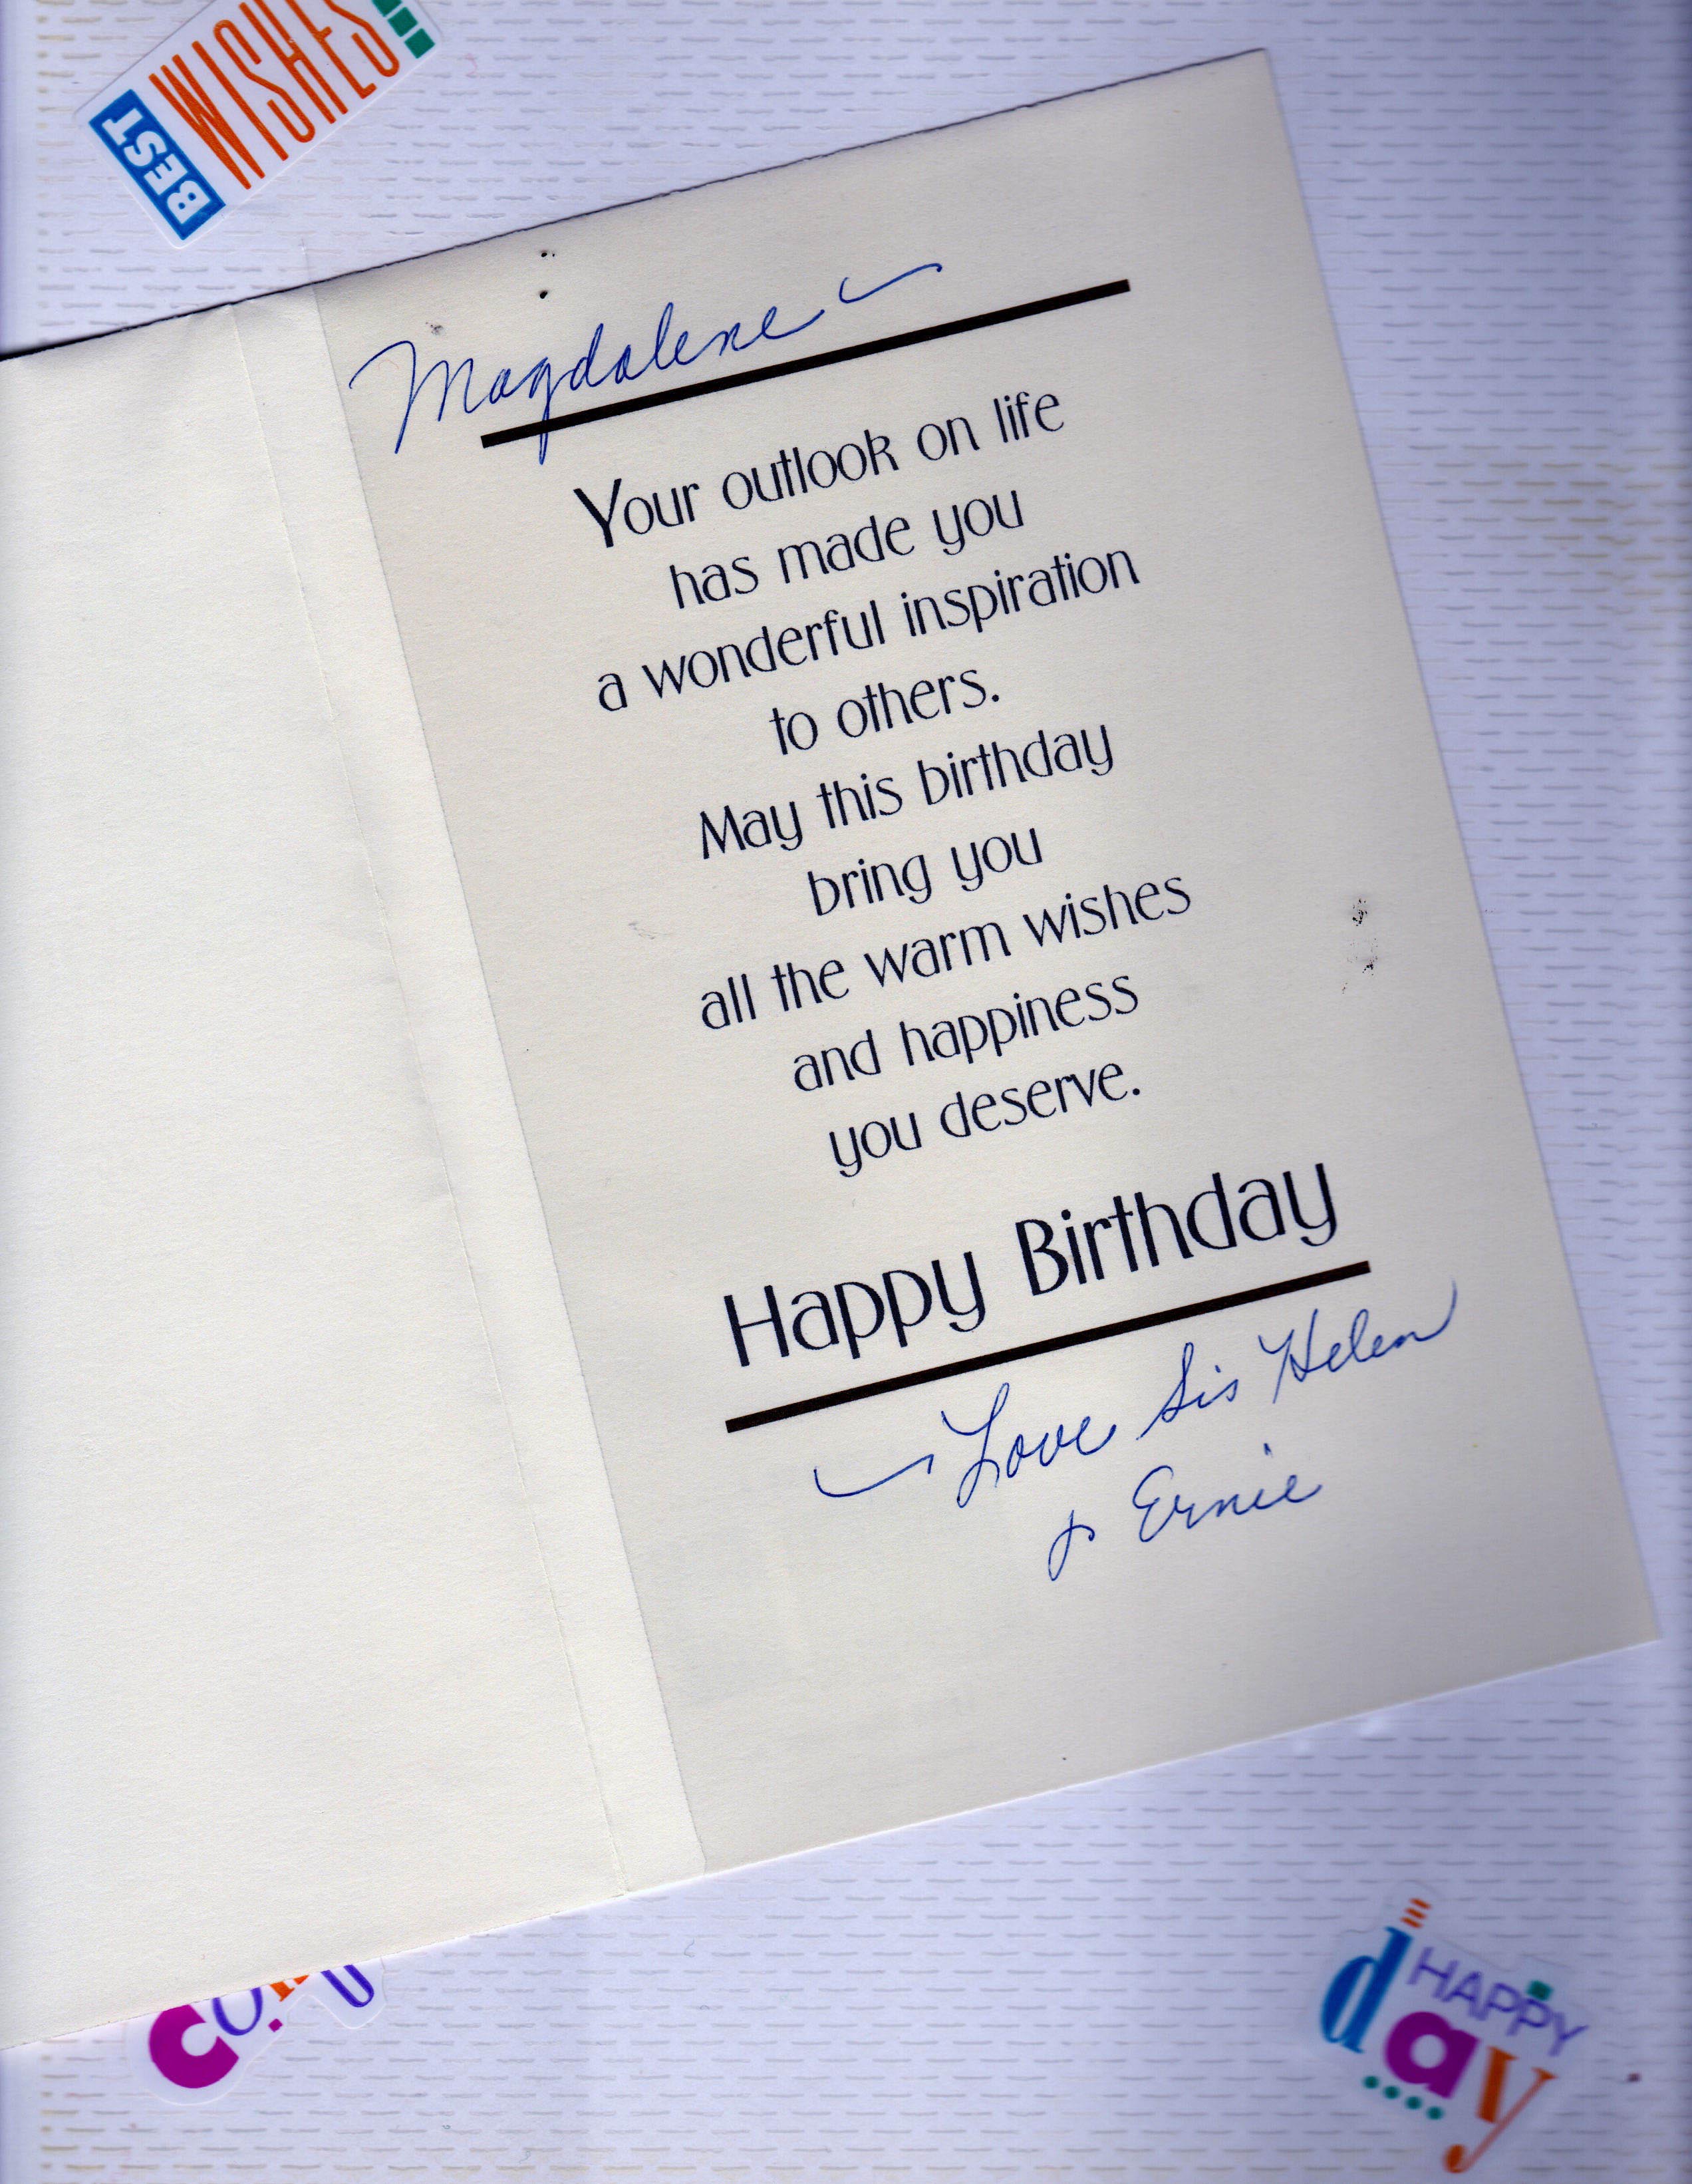 BEST
WISHES...
Magdalene
Your outlook on life
has made you
a wonderful inspiration
to others.
May this birthday
bring you
all the warm wishes
and happiness
you deserve.
Happy Birthday
Love Sis Helen
& Ernie
HAPPY
day